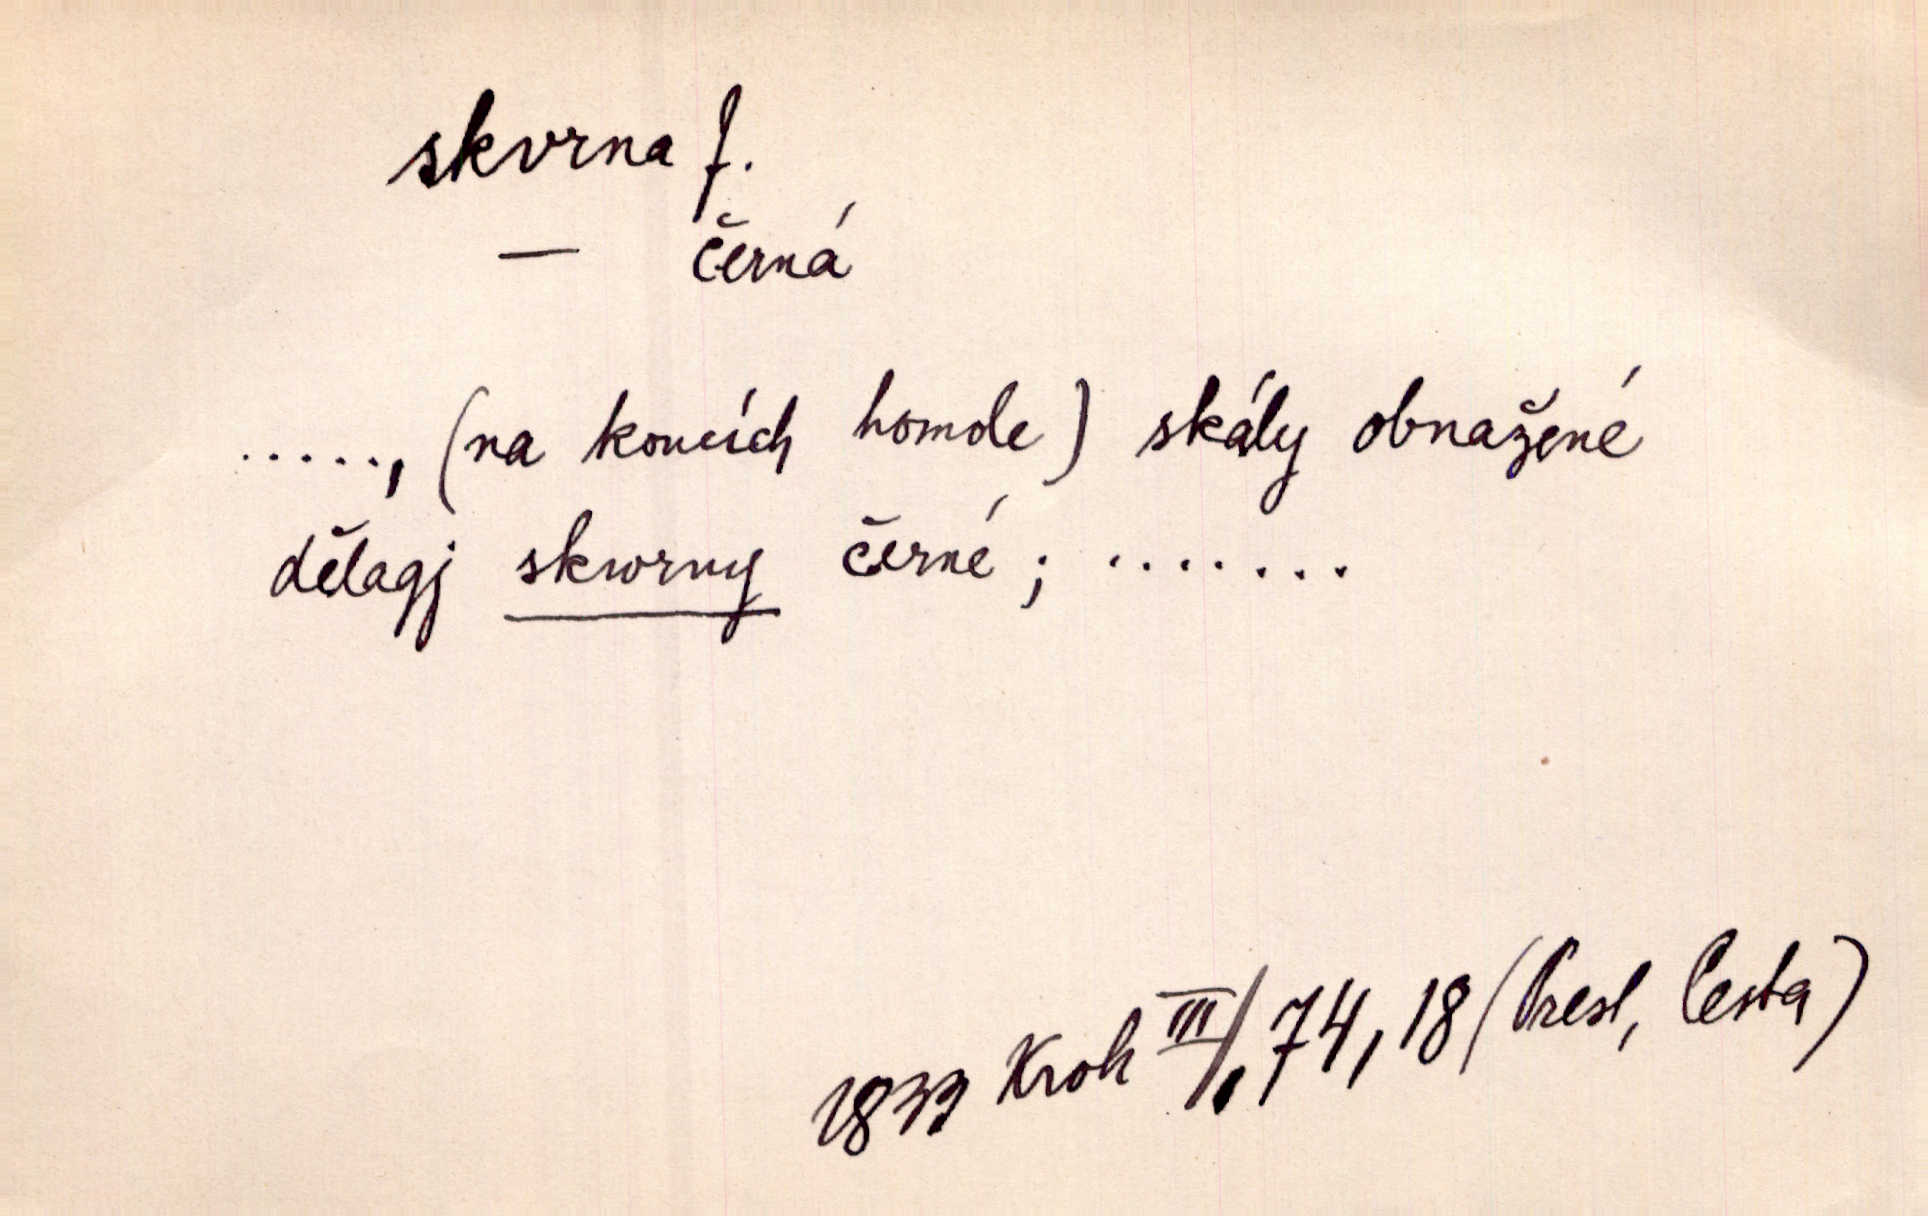 skvrna f.
— černá
....., (na koncích homole) skály obnažené
dělagj skwrny černé; .......
1833 Krok III/, 74, 18 (Presl, Cesta)